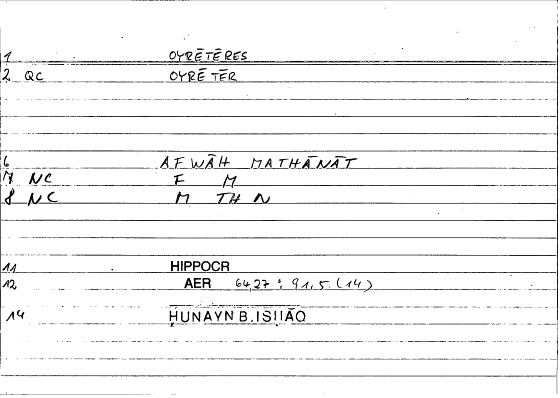 1 OYRĒTĒRES
2 QC OYRĒTĒR
6 AFWĀH MATHĀNĀT
7 NC F M
8 NC M TH N
11 HIPPOCR
12 AER 64,27 : 91,5 (14)
14 ḤUNAYN B. ISḤĀQ